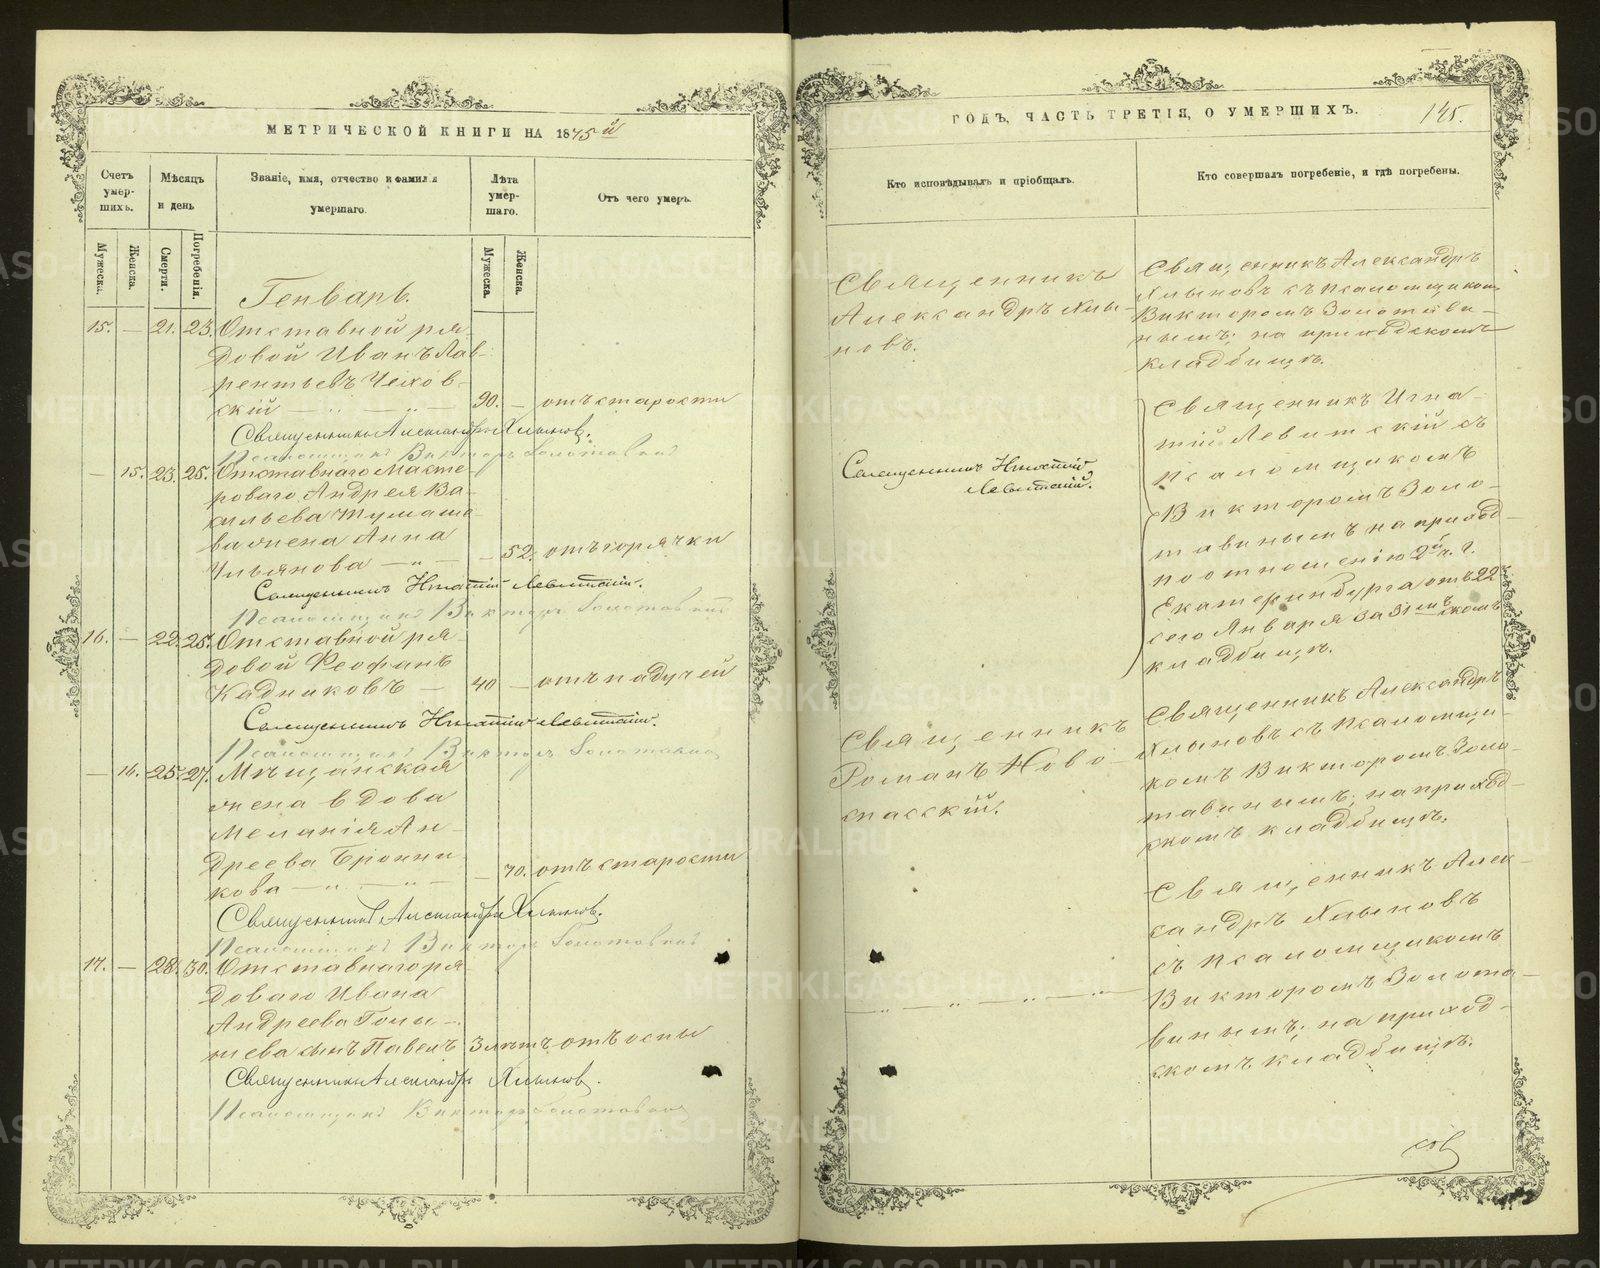 МЕТРИЧЕСКОЙ КНИГИ НА 1875й
Счетъ умер-шихъ.
Мѣсяцъ и день
Званіе, имя, отчество и фамилія умершаго.
Лѣта умер-шаго.
Отъ чего умеръ.
Мужеска.
Женска.
Смерти.
Погребенія.
Мужеска.
Женска.
Генварь.
15. — 21. 23. Отставной ря-
довой Иванъ Лав-
рентьевъ Чехов-
скій — „ — „ — 90. — отъ старости
Священникъ Александръ Хлыновъ.
Псаломщикъ Викторъ Золотавинъ
— 15. 23. 25. Отставнаго масте-
роваго Андрея Ва-
сильева Тумаше-
ва жена Анна
Ульянова — „ — — 52. отъ горячки
Священникъ Игнатій Левитскій.
Псаломщикъ Викторъ Золотавинъ
16. — 22. 25. Отставной ря-
довой Феофанъ
Кадниковъ — 40 — отъ падучей
Священникъ Игнатій Левитскій.
Псаломщикъ Викторъ Золотавинъ
— 16. 25. 27. Мѣщанская
жена вдова
Меланія Ан-
дреева Бронни-
кова — „ — „ — — 70. отъ старости
Священникъ Александръ Хлыновъ.
Псаломщикъ Викторъ Золотавинъ
17. — 28. 30. Отставнаго ря-
доваго Ивана
Андреева Голы-
шева сынъ Павелъ 3 лѣтъ отъ оспы
Священникъ Александръ Хлыновъ.
Псаломщикъ Викторъ Золотавинъ
ГОДЪ, ЧАСТЬ ТРЕТІЯ, О УМЕРШИХЪ.
145.
Кто исповѣдывалъ и пріобщалъ.
Кто совершалъ погребеніе, и гдѣ погребены.
Священникъ
Александръ Хлы-
новъ.
Священникъ Александръ
Хлыновъ съ псаломщикомъ
Викторомъ Золотави-
нымъ; на приходскомъ
кладбищѣ.
Священникъ Игнатій
Левитскій.
Священникъ Игна-
тій Левитскій съ
псаломщикомъ
Викторомъ Золо-
тавинымъ на приход-
по отношенію 2й ч. г.
Екатеринбурга отъ 22
сего Января за № скомъ
кладбищѣ.
Священникъ
Романъ Ново-
спасскій.
Священникъ Александръ
Хлыновъ съ псаломщи-
комъ Викторомъ Золо-
тавинымъ; на приход-
скомъ кладбищѣ.
Священникъ Алек-
сандръ Хлыновъ
съ псаломщикомъ
— „ — „ — Викторомъ Золота-
винымъ; на приход-
скомъ кладбищѣ.
METRIKI.GASO-URAL.RU